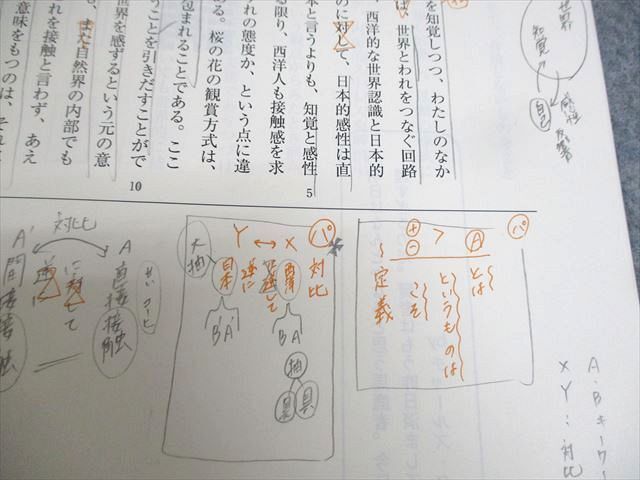 を知覚しつつ、わたしのなか
は、世界とわれをつなぐ回路
、西洋的な世界認識と日本的
のに対して、日本的感性は直
本と言うよりも、知覚と感性
る限り、西洋人も接触感を求
れの態度か、という点に違
ある。桜の花の観賞方式は、
包まれることである。ここ
うことを引きだすことがで
世界を感ずるという元の意
も、また自然界の内部でも
れを接触と言わず、あえ
意味をもつのは、それと
5
10
世界
知覚
自己
感性
パ
Aとは
というものは
こそ
⊕
⊖
〜定義
パ 対比
X ↔ Y
西洋
に対して
逆に
日本
BA
BA
大抽
抽
具
具
対比
A 直接接触
に対して
逆に
A' 間接接触
A・Bキーワー
XY:対比